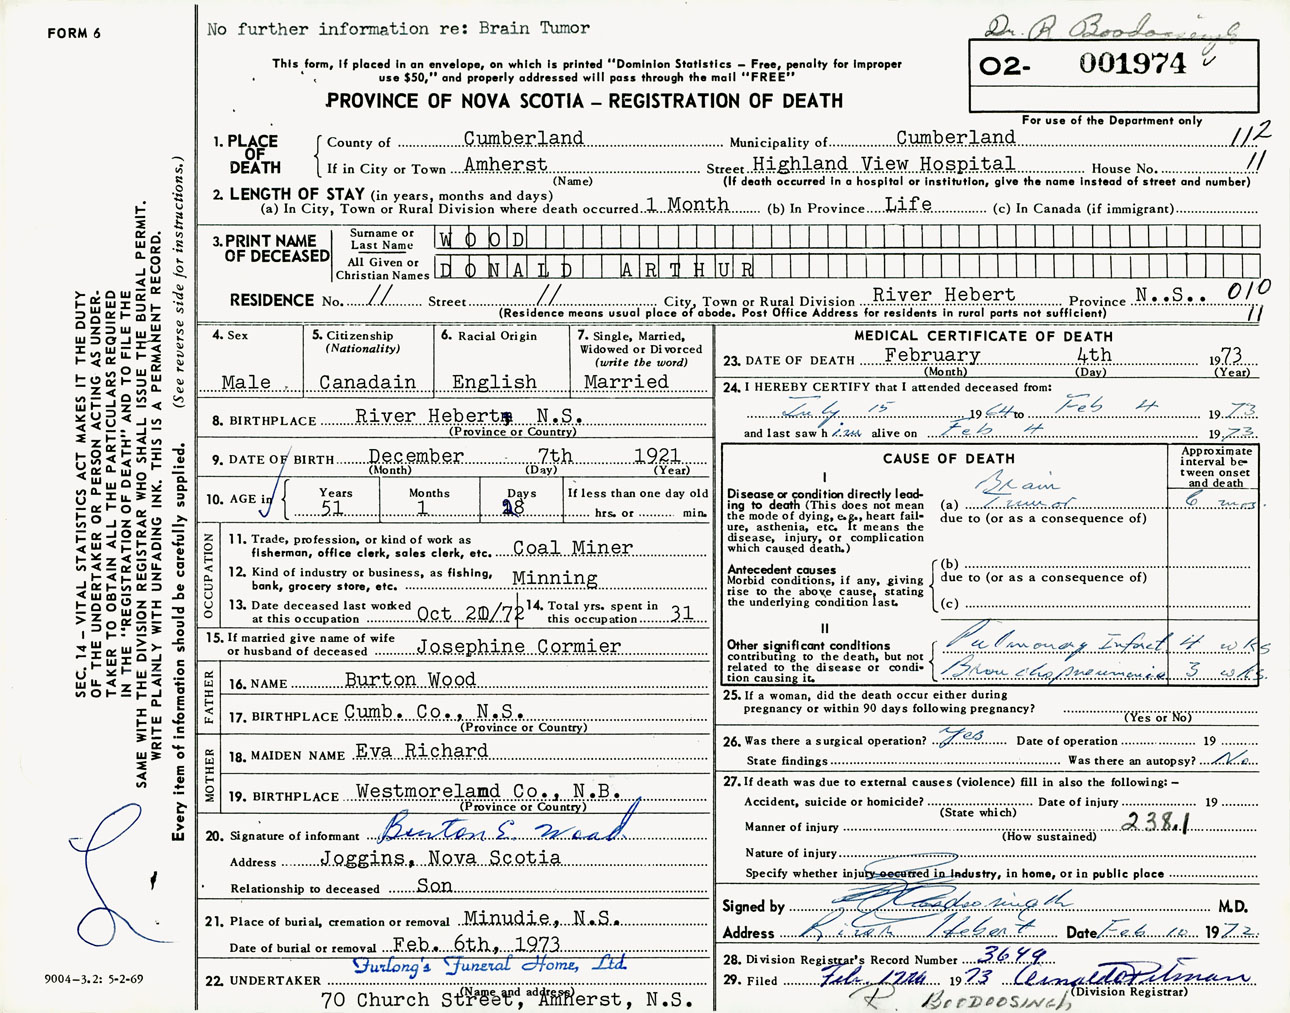 FORM 6
No further information re: Brain Tumor
Dr. R Boodoosingh
This form, if placed in an envelope, on which is printed "Dominion Statistics – Free, penalty for improper
use $50," and properly addressed will pass through the mail "FREE"
O2- 001974
PROVINCE OF NOVA SCOTIA – REGISTRATION OF DEATH
For use of the Department only
1. PLACE OF DEATH
County of Cumberland Municipality of Cumberland 112
If in City or Town Amherst Street Highland View Hospital House No. 11
(Name) (If death occurred in a hospital or institution, give the name instead of street and number)
2. LENGTH OF STAY (in years, months and days)
(a) In City, Town or Rural Division where death occurred 1 Month (b) In Province Life (c) In Canada (if immigrant)
3. PRINT NAME OF DECEASED
Surname or Last Name WOOD
All Given or Christian Names DONALD ARTHUR
RESIDENCE No. // Street // City, Town or Rural Division River Hebert Province N..S.. 010
(Residence means usual place of abode. Post Office Address for residents in rural parts not sufficient) 11
4. Sex Male
5. Citizenship (Nationality) Canadain
6. Racial Origin English
7. Single, Married, Widowed or Divorced (write the word) Married
8. BIRTHPLACE River Hebert, N.S.
(Province or Country)
9. DATE OF BIRTH December 7th 1921
(Month) (Day) (Year)
10. AGE in Years 51 Months 1 Days 28 If less than one day old
hrs. or min.
OCCUPATION
11. Trade, profession, or kind of work as
fisherman, office clerk, sales clerk, etc. Coal Miner
12. Kind of industry or business, as fishing,
bank, grocery store, etc. Minning
13. Date deceased last worked
at this occupation Oct 20/72
14. Total yrs. spent in
this occupation 31
15. If married give name of wife
or husband of deceased Josephine Cormier
FATHER
16. NAME Burton Wood
17. BIRTHPLACE Cumb. Co., N.S.
(Province or Country)
MOTHER
18. MAIDEN NAME Eva Richard
19. BIRTHPLACE Westmoreland Co., N.B.
(Province or Country)
20. Signature of informant Burton E. Wood
Address Joggins, Nova Scotia
Relationship to deceased Son
21. Place of burial, cremation or removal Minudie, N.S.
Date of burial or removal Feb. 6th, 1973
Furlong's Funeral Home, Ltd.
22. UNDERTAKER
(Name and address)
70 Church Street, Amherst, N.S.
MEDICAL CERTIFICATE OF DEATH
23. DATE OF DEATH February 4th 1973
(Month) (Day) (Year)
24. I HEREBY CERTIFY that I attended deceased from:
July 15 1964 to Feb 4 1973
and last saw him alive on Feb 4 1973
CAUSE OF DEATH
Approximate interval between onset and death
I
Disease or condition directly leading to death (This does not mean the mode of dying, e.g., heart failure, asthenia, etc. It means the disease, injury, or complication which caused death.)
(a) Brain Tumor 6 mos.
due to (or as a consequence of)
Antecedent causes
Morbid conditions, if any, giving rise to the above cause, stating the underlying condition last.
(b)
due to (or as a consequence of)
(c)
II
Other significant conditions
contributing to the death, but not related to the disease or condition causing it.
Pulmonary Infarct 4 wks
Bronchopneumonia 3 wks.
25. If a woman, did the death occur either during
pregnancy or within 90 days following pregnancy?
(Yes or No)
26. Was there a surgical operation? Yes Date of operation 19
State findings Was there an autopsy? No
27. If death was due to external causes (violence) fill in also the following: –
Accident, suicide or homicide? Date of injury 19
(State which)
Manner of injury 238.1
(How sustained)
Nature of injury
Specify whether injury occurred in industry, in home, or in public place
Signed by Boodoosingh M.D.
Address River Hebert Date Feb 10 1972
28. Division Registrar's Record Number 3649
29. Filed Feb. 12th 1973 Pitman
(Division Registrar)
R BOODOOSINGH
SEC. 14 – VITAL STATISTICS ACT MAKES IT THE DUTY
OF THE UNDERTAKER OR PERSON ACTING AS UNDER-
TAKER TO OBTAIN ALL THE PARTICULARS REQUIRED
IN THE "REGISTRATION OF DEATH" AND TO FILE THE
SAME WITH THE DIVISION REGISTRAR WHO SHALL ISSUE THE BURIAL PERMIT.
WRITE PLAINLY WITH UNFADING INK. THIS IS A PERMANENT RECORD.
Every item of information should be carefully supplied. (See reverse side for instructions.)
9004–3.2: 5-2-69